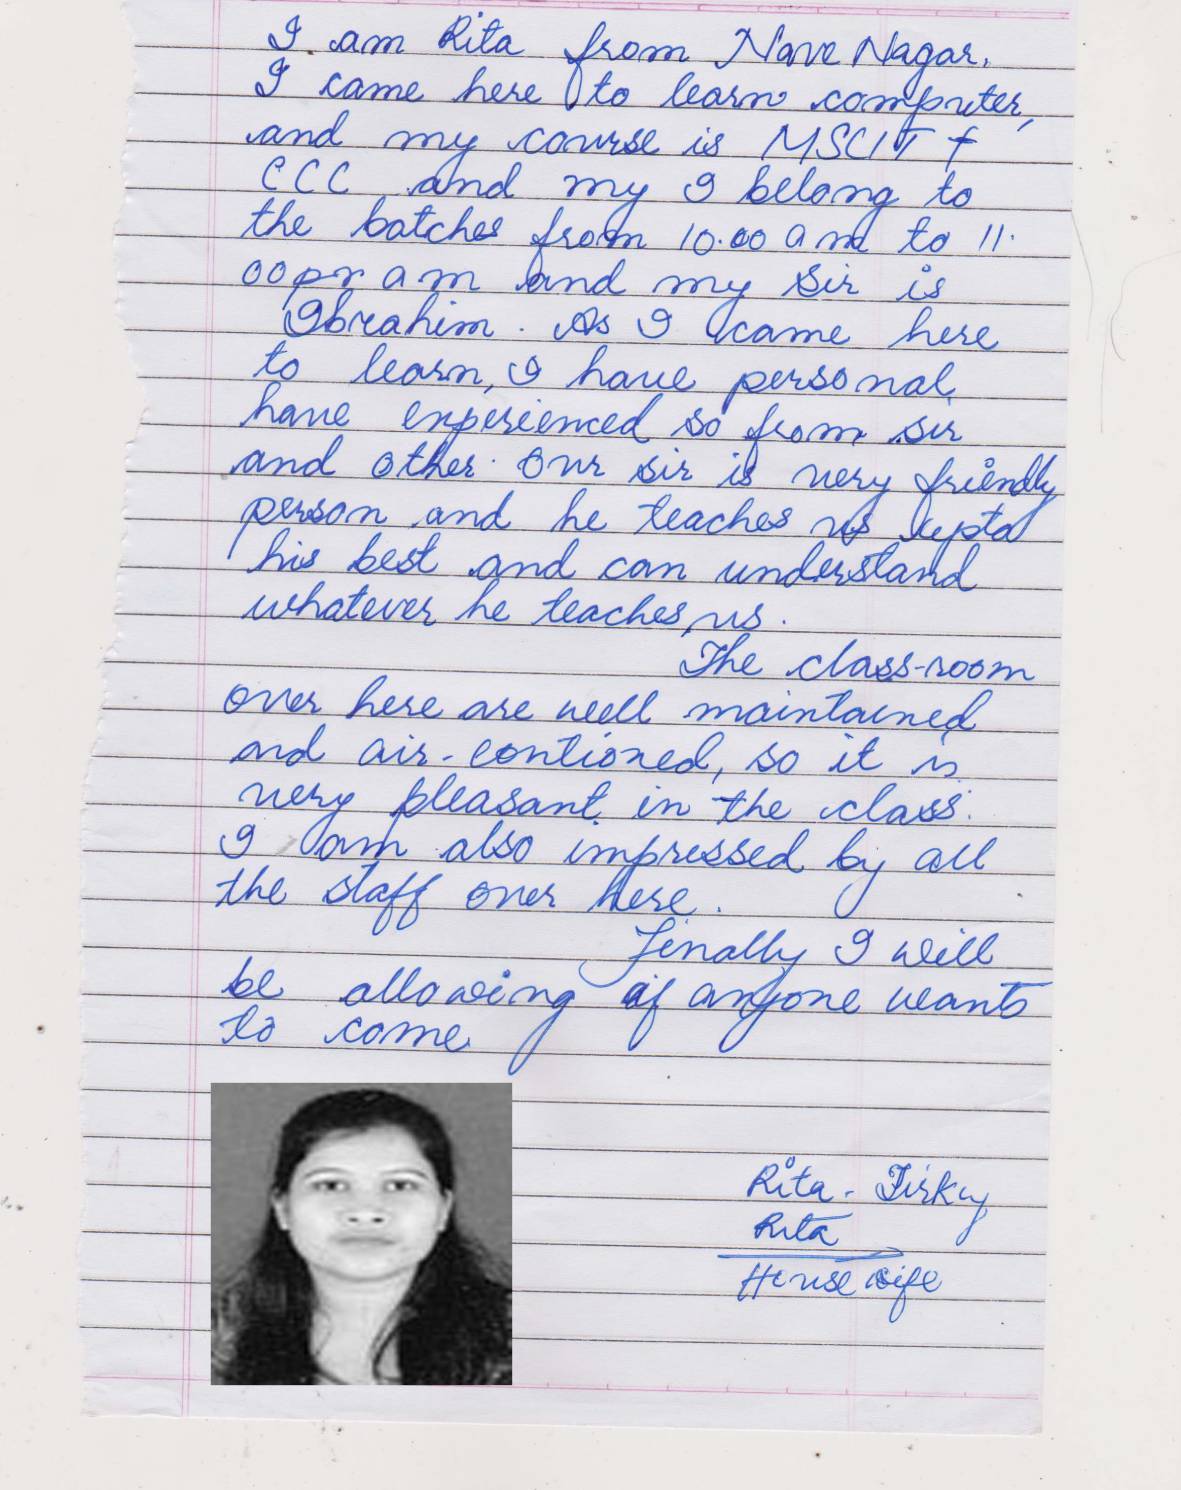 I am Rita from Nave Nagar.
I came here to learn computer,
and my course is MSCIT +
CCC and my I belong to
the batches from 10.00 am to 11.
00pm am and my Sir is
Ibrahim. As I came here
to learn, I have personal
have experienced so from sir
and other. Our sir is very friendly
person and he teaches us upto
his best and can understand
whatever he teaches us.
The class-room
over here are well maintained
and air-contioned, so it is
very pleasant in the class.
I am also impressed by all
the staff over here.
Finally I will
be allowing if anyone wants
to come
Rita - Tirky
Rita
House wife